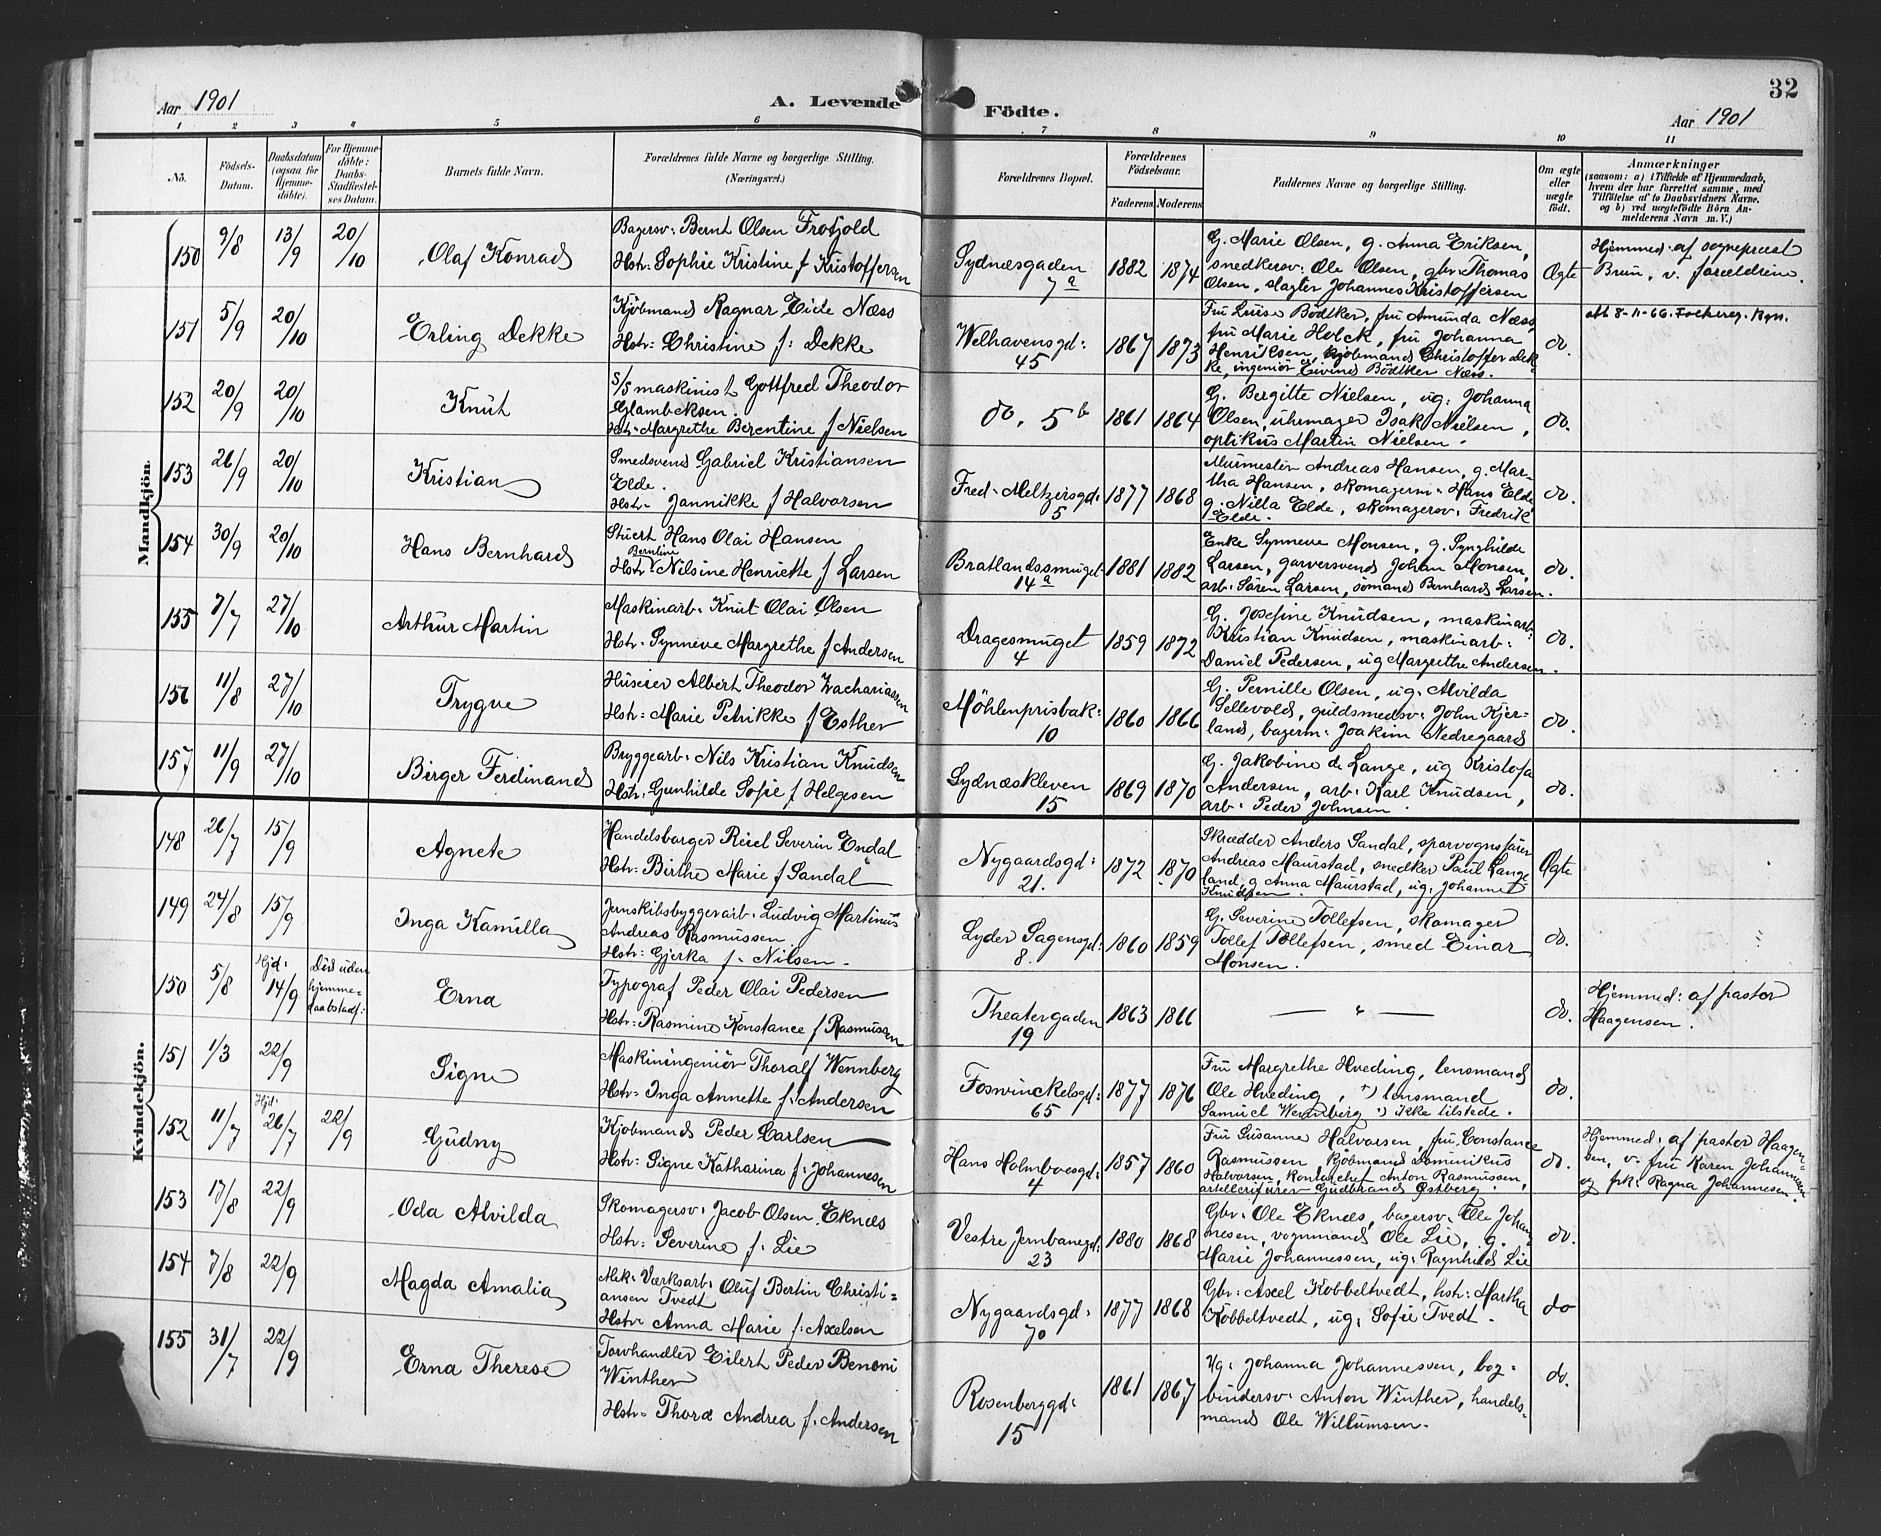 Aar 1901
A. Levende Födte.
32
Aar 1901
1 2 3 4 5 6 7 8 9 10 11
No.
Födsels-Datum.
Daabsdatum (ogsaa for Hjemme-döbte).
For Hjemme-döbte: Daabs-Stadfæstel-ses Datum.
Barnets fulde Navn.
Forældrenes fulde Navne og borgerlige Stilling. (Næringsvei.)
Forældrenes Bopæl.
Forældrenes Födselsaar.
Faderens Moderens
Faddernes Navne og borgerlige Stilling.
Om ægte eller uægte født.
Anmærkninger
(saasom: a) i Tilfælde af Hjemmedaab,
hvem der har forrettet samme, med
Tilføielse af to Daabsvidners Navne.
og b) ved uægtefödte Börn An-
melderens Navn m. V.)
Mandkjön.
150 9/8 13/9 20/10 Olaf Konrad
Bagersv: Bernt Olsen Frotjold
Hstr: Sophie Kristine f Kristoffersen
Sydnæsgaden 7a
1882 1874
G. Marie Olsen, g. Anna Eriksen,
snedkersv: Ole Olsen, gbr: Thomas
Olsen, slagter Johannes Kristoffersen
Ægte
Hjemmed: af sognepræst
Brun, v. forældrene.
151 5/9 20/10 Erling Dekke
Kjöbmand Ragnar Eide Næss
Hstr: Christine f: Dekke
Welhavensgd: 45
1867 1873
Fru Luise Bödtker, fru Amunda Næss,
fru Marie Holck, fru Johanna
Henriksen, kjöbmand Christoffer Dek-
ke, ingeniör Eivind Bödtker Næss.
do.
att 8-11-66. Folkereg. Bgn.
152 20/9 20/10 Knut
s/s maskinist Gottfred Theodor
Glambeksen.
Hstr: Margrethe Berentine f Nielsen
do. 5b
1861 1864
G. Bergitte Nielsen, ug: Johanna
Olsen, uhrmager Isak Nielsen,
optikus Martin Nielsen.
do.
153 26/9 20/10 Kristian
Smedsvend Gabriel Kristiansen
Elde.
Hstr: Jannikke f Halvorsen
Fred. Meltzersgd: 5
1877 1868
Murmester Andreas Hansen, g. Mar-
tha Hansen, skomagerm: Hans Elde
g. Nilla Elde, skomagersv: Fredrik
Elde.
do.
154 30/9 20/10 Hans Bernhard
Stuert Hans Olai Hansen
Berntine
Hstr: Nilsine Henriette f Larsen
Bratlandssmuget 14a
1881 1882
Enke Synneve Monsen, g. Synghilde
Larsen, garversvend Johan Monsen,
arb: Sören Larsen, sömand Bernhard Larsen.
do.
155 7/7 27/10 Arthur Martin
Maskinarb: Knut Olai Olsen
Hstr: Synneve Margrethe f Andersen
Dragesmuget 4
1859 1872
G. Josefine Knudsen, maskinarb:
Kristian Knudsen, maskinarb:
Daniel Pedersen, ug Margrethe Andersen.
do.
156 11/8 27/10 Trygve
Huseier Albert Theodor Zachariassen
Hstr: Marie Petrikke f Esther
Möhlenprisbak: 10
1860 1866
G. Pernille Olsen, ug: Alvilda
Sellevold, guldsmedsv: John Kjer-
land, bagerm: Joakim Nedregaard
do.
157 11/9 27/10 Birger Ferdinand
Bryggearb: Nils Kristian Knudsen
Hstr: Gunhilde Sofie f Helgesen
Sydnæskleven 15
1869 1870
G. Jakobine de Lange, ug Kristofa
Andersen, arb: Karl Knudsen,
arb: Peder Johnsen.
do.
Kvindekjön.
148 26/7 15/9 Agnete
Handelsborger Reiel Severin Endal
Hstr: Birthe Marie f Sandal
Nygaardsgd: 21.
1872 1870
Skrædder Anders Sandal, sporvognsförer
Andreas Maurstad, snedker Paul Lange-
land, g Anna Maurstad, ug: Johanne
Knudsen.
Ægte
149 24/8 15/9 Inga Kamilla
Jernskibsbyggerarb: Ludvig Martinus
Andreas Rasmussen
Hstr: Gjerka f. Nilsen.
Lyder Sagensgd: 8.
1860 1859
G. Severine Tollefsen, skomager
Tollef Tollefsen, smed Einar
Monsen.
do.
150 5/8 Hjd: 14/9 Död uden hjemme-daabstadf: Erna
Typograf Peder Olai Pedersen
Hstr: Rasmine Konstance f Rasmussen
Theatergaden 19
1863 1866
— " —
do.
Hjemmed: af pastor
Haagensen.
151 1/3 22/9 Signe
Maskiningeniör Thoralf Wennberg
Hstr: Inga Annette f: Andersen
Foswinckelsgd: 65
1877 1876
Fru Margrethe Hveding, lensmand
Ole Hveding, *) lensmand
Samuel Wennberg *) ikke tilstede.
do.
152 11/7 Hjd: 26/7 22/9 Gudny
Kjöbmand Peder Carlsen
Hstr: Signe Katharina f: Johannesen
Hans Holmboesgd: 4
1857 1860
Fru Susanne Halvorsen, fru Constance
Rasmussen, kjöbmand Dominikus
Halvorsen, kontorchef Anton Rasmussen,
artillerifurer Gudbrand Östberg.
do.
Hjemmed: af pastor Haagen-
sen, v: fru Karen Johannesen
og frk: Ragna Johannesen.
153 17/8 22/9 Oda Alvilda
Skomagersv: Jacob Olsen Eknæs
Hstr: Severine f: Lie
Vestre Jernbanegd: 23
1880 1868
Gbr: Ole Eknæs, bagersv: Ole Johan-
nesen, vognmand Ole Lie, g.
Marie Johannessen, ug: Ragnhild Lie
do.
154 7/8 22/9 Magda Amalia
Mek: Værksarb: Oluf Bertin Christi-
ansen Tvedt
Hstr: Anna Marie f: Axelsen
Nygaardsgd: 70
1877 1868
Gbr: Axel Kobbeltvedt, hstr: Martha
Kobbeltvedt, ug: Sofie Tvedt.
do
155 31/7 22/9 Erna Therese
Torvhandler Eilert Peder Benoni
Winther
Hstr: Thora Andrea f: Andersen
Rosenberggd: 15
1861 1867
Ug: Johanna Johannesen, bog-
bindersv: Anton Winther, handels-
mand Ole Willumsen.
do.